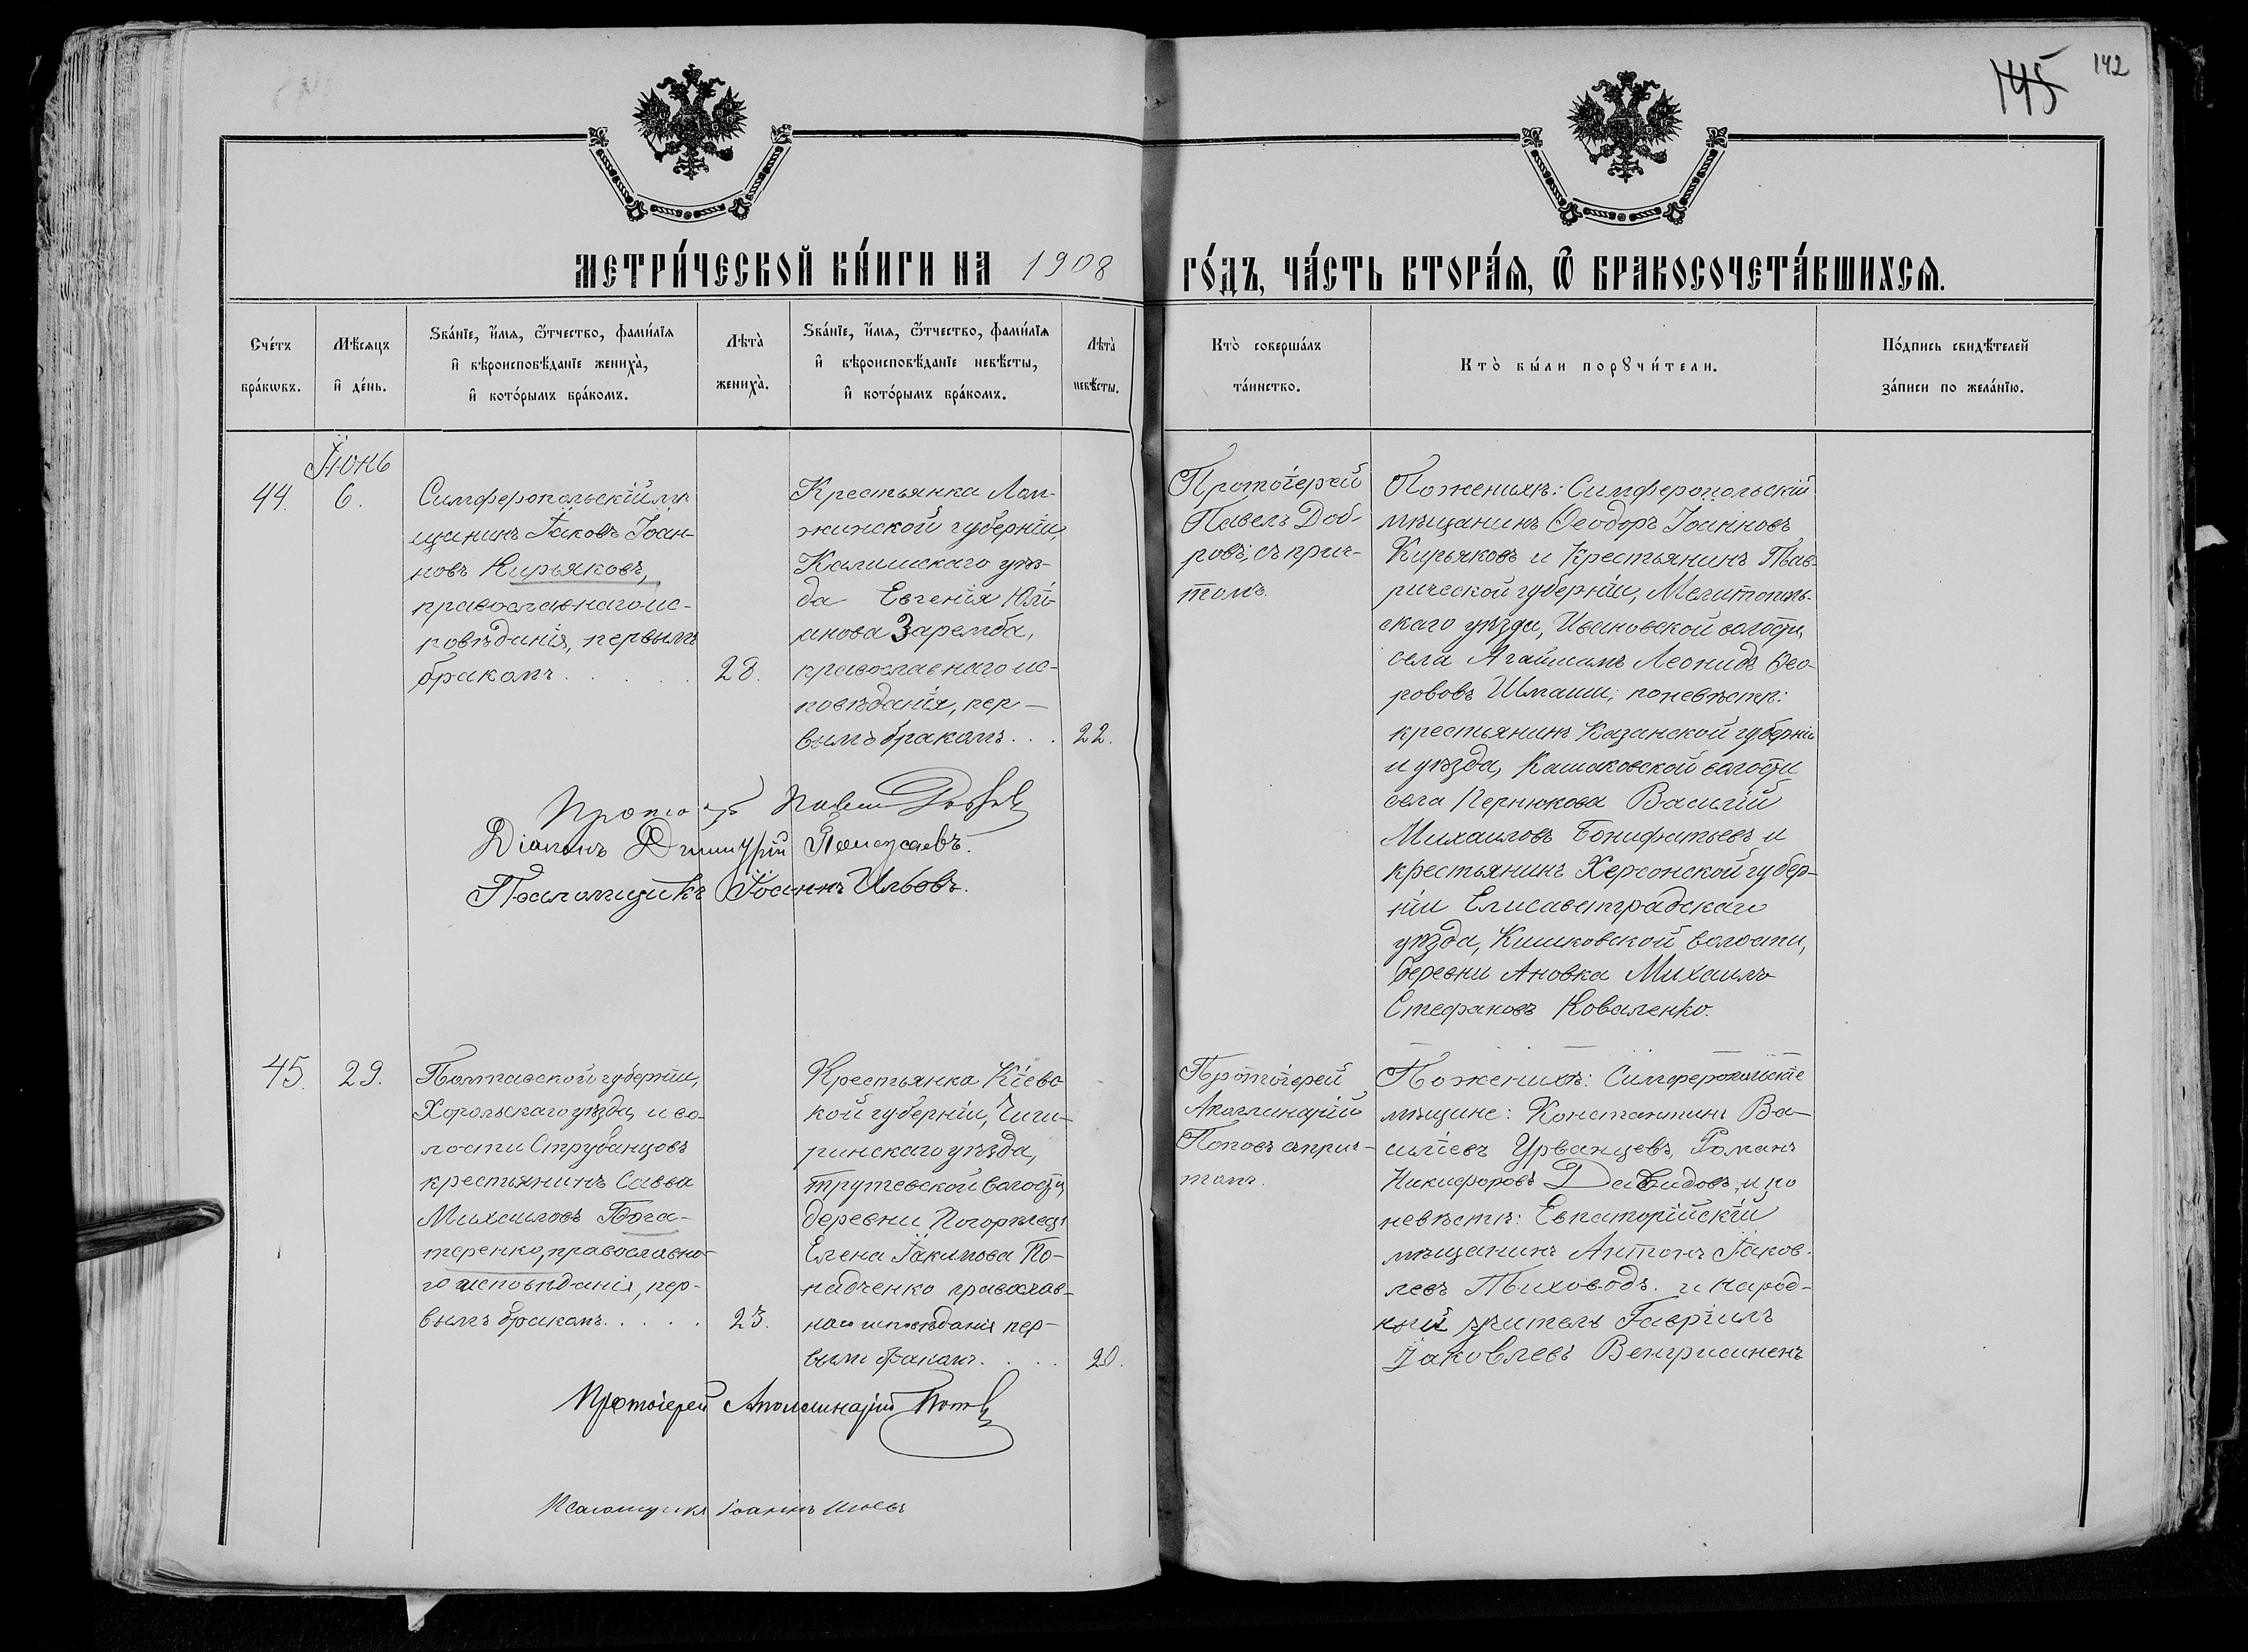 145 142
МЕТРИ́ЧЕСКОЙ КНИ́ГИ НА 1908 ГО́ДЪ, ЧА́СТЬ ВТОРА́Ѧ, Ѡ БРАКОСОЧЕТА́ВШИХСѦ.
Сче́тъ
бра́кѡвъ.
Мѣ́сяцъ
и де́нь.
Зва́нїе, и́мѧ, ѻ́тчество, фами́лїѧ
и҆ вѣроисповѣ́данїе жениха̀,
и҆ кото́рымъ бра́комъ.
Лѣта̀
жениха̀.
Зва́нїе, и́мѧ, ѻ́тчество, фами́лїѧ
и҆ вѣроисповѣ́данїе невѣ́сты,
и҆ кото́рымъ бра́комъ.
Лѣта̀
невѣ́сты.
Кто̀ соверша́лъ
та́инство.
Кто̀ бы́ли порꙋчи́тели.
По́дпись свидѣ́телей
за́писи по жела́нїю.
Іюнь
44. 6.
Симферопольскій мѣ
щанинъ Іаковъ Іоан-
новъ Кирьяковъ,
православнаго ис-
повѣданія, первымъ
бракомъ . . . . . 28.
Крестьянка Лом-
жинской губерніи,
уѣз-
да Евгенія Юлі-
анова Заремба,
православнаго ис-
повѣданія, пер-
вымъ бракомъ . . . 22.
Протоіерей
Павелъ Доб-
ровъ, съ прич-
томъ
По женихѣ: Симферопольскій
мѣщанинъ Ѳеодоръ Іоанновъ
Кирьяковъ и Крестьянинъ Тав-
рической губерніи, Мелитополь-
скаго уѣзда, Ивановской волости,
села Агайманъ Леонидъ Ѳео-
ровъ по невѣстѣ:
крестьянинъ Казанской губерніи
и уѣзда, волости
села Василій
Михаиловъ Бонифатьевъ и
крестьянинъ Херсонской губер-
ніи Елисаветградскаго
уѣзда, волости,
деревни Ановка Михаилъ
Стефановъ Коваленко.
Павелъ Добровъ
Діаконъ Димитрій
Псаломщикъ Іоаннъ Ильовъ.
45. 29.
Полтавской губерніи,
Хорольскаго уѣзда, и во-
лости Струбанцовъ
крестьянинъ Савва
Михаиловъ Бога-
теренко, православна-
го исповѣданія, пер-
вымъ бракомъ. . . . . 23.
Крестьянка Кіевс
кой губерніи, Чиги-
ринскаго уѣзда,
волости,
деревни Погорѣлец
Елена Іакимова По-
надченко православ-
наго исповѣданія пер-
вымъ бракомъ. . . . 20.
Протоіерей
Аполлинарій
Поповъ съ прич-
томъ.
По женихѣ: Симферопольскіе
мѣщане: Константинъ Ва-
силіевъ Урванцевъ, Романъ
Никифоровъ Давидовъ, и по
невѣстѣ: Евпаторійскій
мѣщанинъ Антонъ Іаков-
левъ Тиховодъ. и народ-
ный учитель Гавріилъ
Іаковлевъ
Протоіерей Аполлинарій Поповъ
Псаломщикъ Іоаннъ